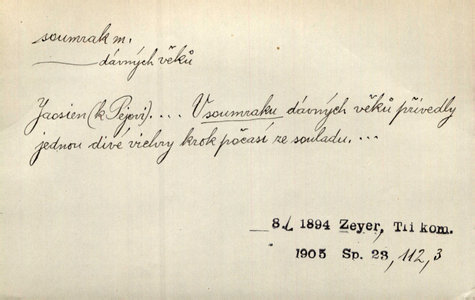 soumrak m.
——— dávných věků
Jaosien (k Pejovi). . . . V soumraku dávných věků přivedly
jednou divé vichry krok počasí ze souladu. . . .
8. 1894 Zeyer, Tři kom.
1905 Sp. 23, 112, 3